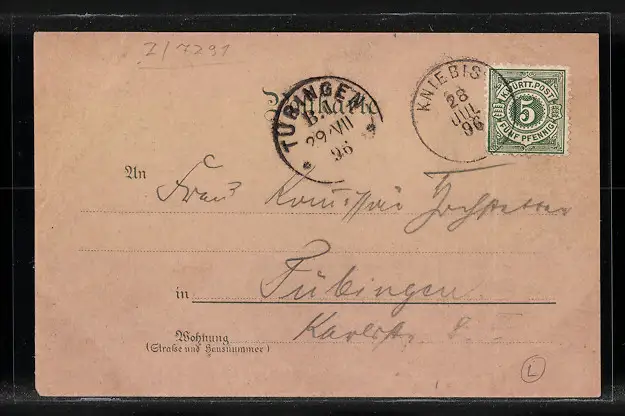 I/7291
Postkarte
TÜBINGEN
29 VII
96
KNIEBIS
28
JUL
96
K. WÜRTT. POST
5
FÜNF PFENNIG
An
Frau
in Tübingen
Karlstr. 8
Wohnung
(Straße und Hausnummer)
L